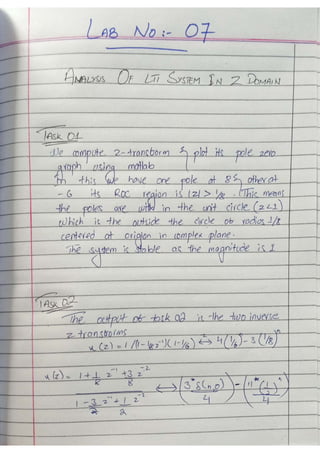 LAB No:- 07
ANALYSIS OF LTI SYSTEM IN Z DOMAIN
TASK 01
We compute z-transform & plot its pole zero
graph using matlab
In this we have one pole at 8 & other at
-6 its ROC region is |z| > 1/8. This means
the poles are with in the unit circle (z<1)
which is the outside the circle of radios 1/8
centered at origion in complex plane.
The system is stable as the magnitude is 1
TASK 02
The output of task 02 is the two inverse
z transforms
x(z) = 1/(1-1/8z⁻¹)(1-1/6) ↔ 4(1/6)ⁿ - 3(1/8)ⁿ
x(z) = 1 + 1/8 z⁻¹ + 3/8 z⁻²
1 - 3/2 z⁻¹ + 1/2 z⁻² ↔ (3*δ(n,0)/4) - (11*(1/2)ⁿ/4)